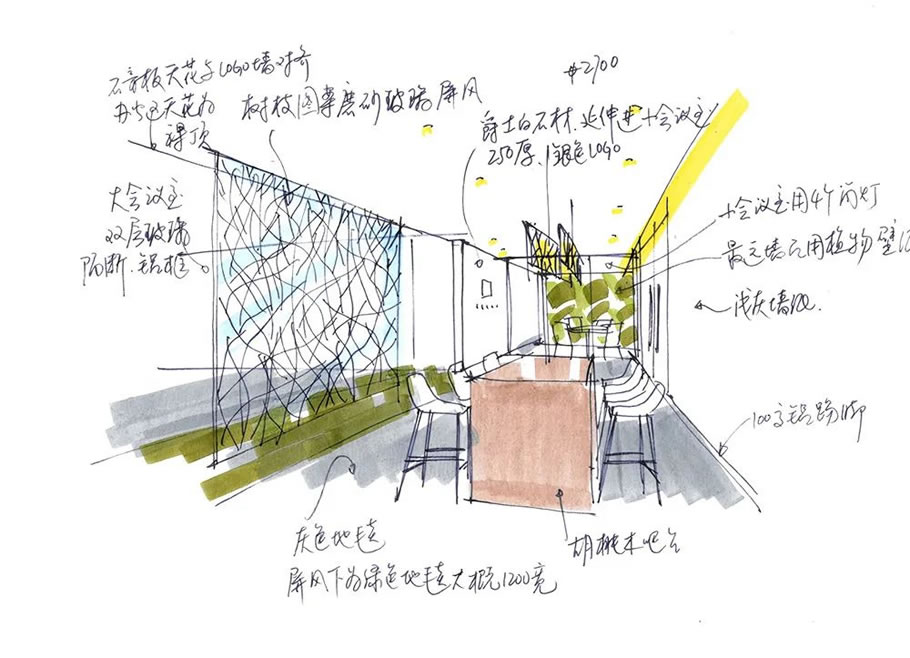 石膏板天花与LOGO墙对齐
办公区天花为
裸顶
树枝图案磨砂玻璃屏风
2700
爵士白石材.延伸进小会议室
250厚、银色LOGO
大会议室
双层玻璃
隔断.铝框。
小会议室用4个筒灯
用植物壁
浅灰墙
100高铝踢脚
灰色地毯
屏风下为绿色地毯大概1200宽
胡桃木吧台